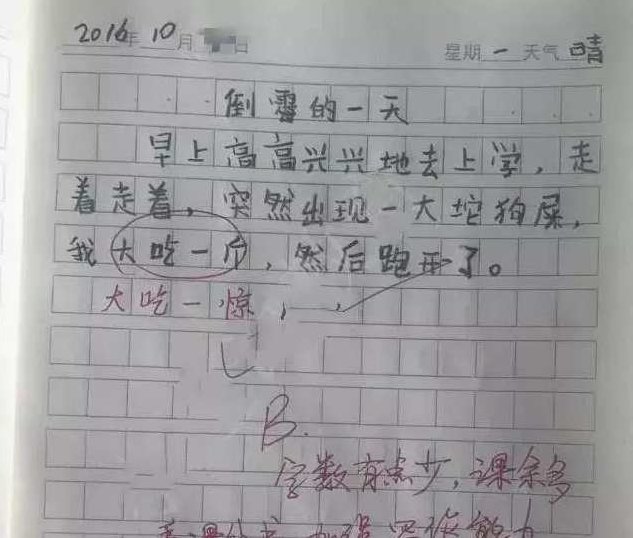 2016年 10月 日 星期一 天气 晴
倒霉的一天
早上高高兴兴地去上学，走
着走着，突然出现一大坨狗屎，
我大吃一斤，然后跑开了。
大吃一惊，
B.
字数有点少，课余多